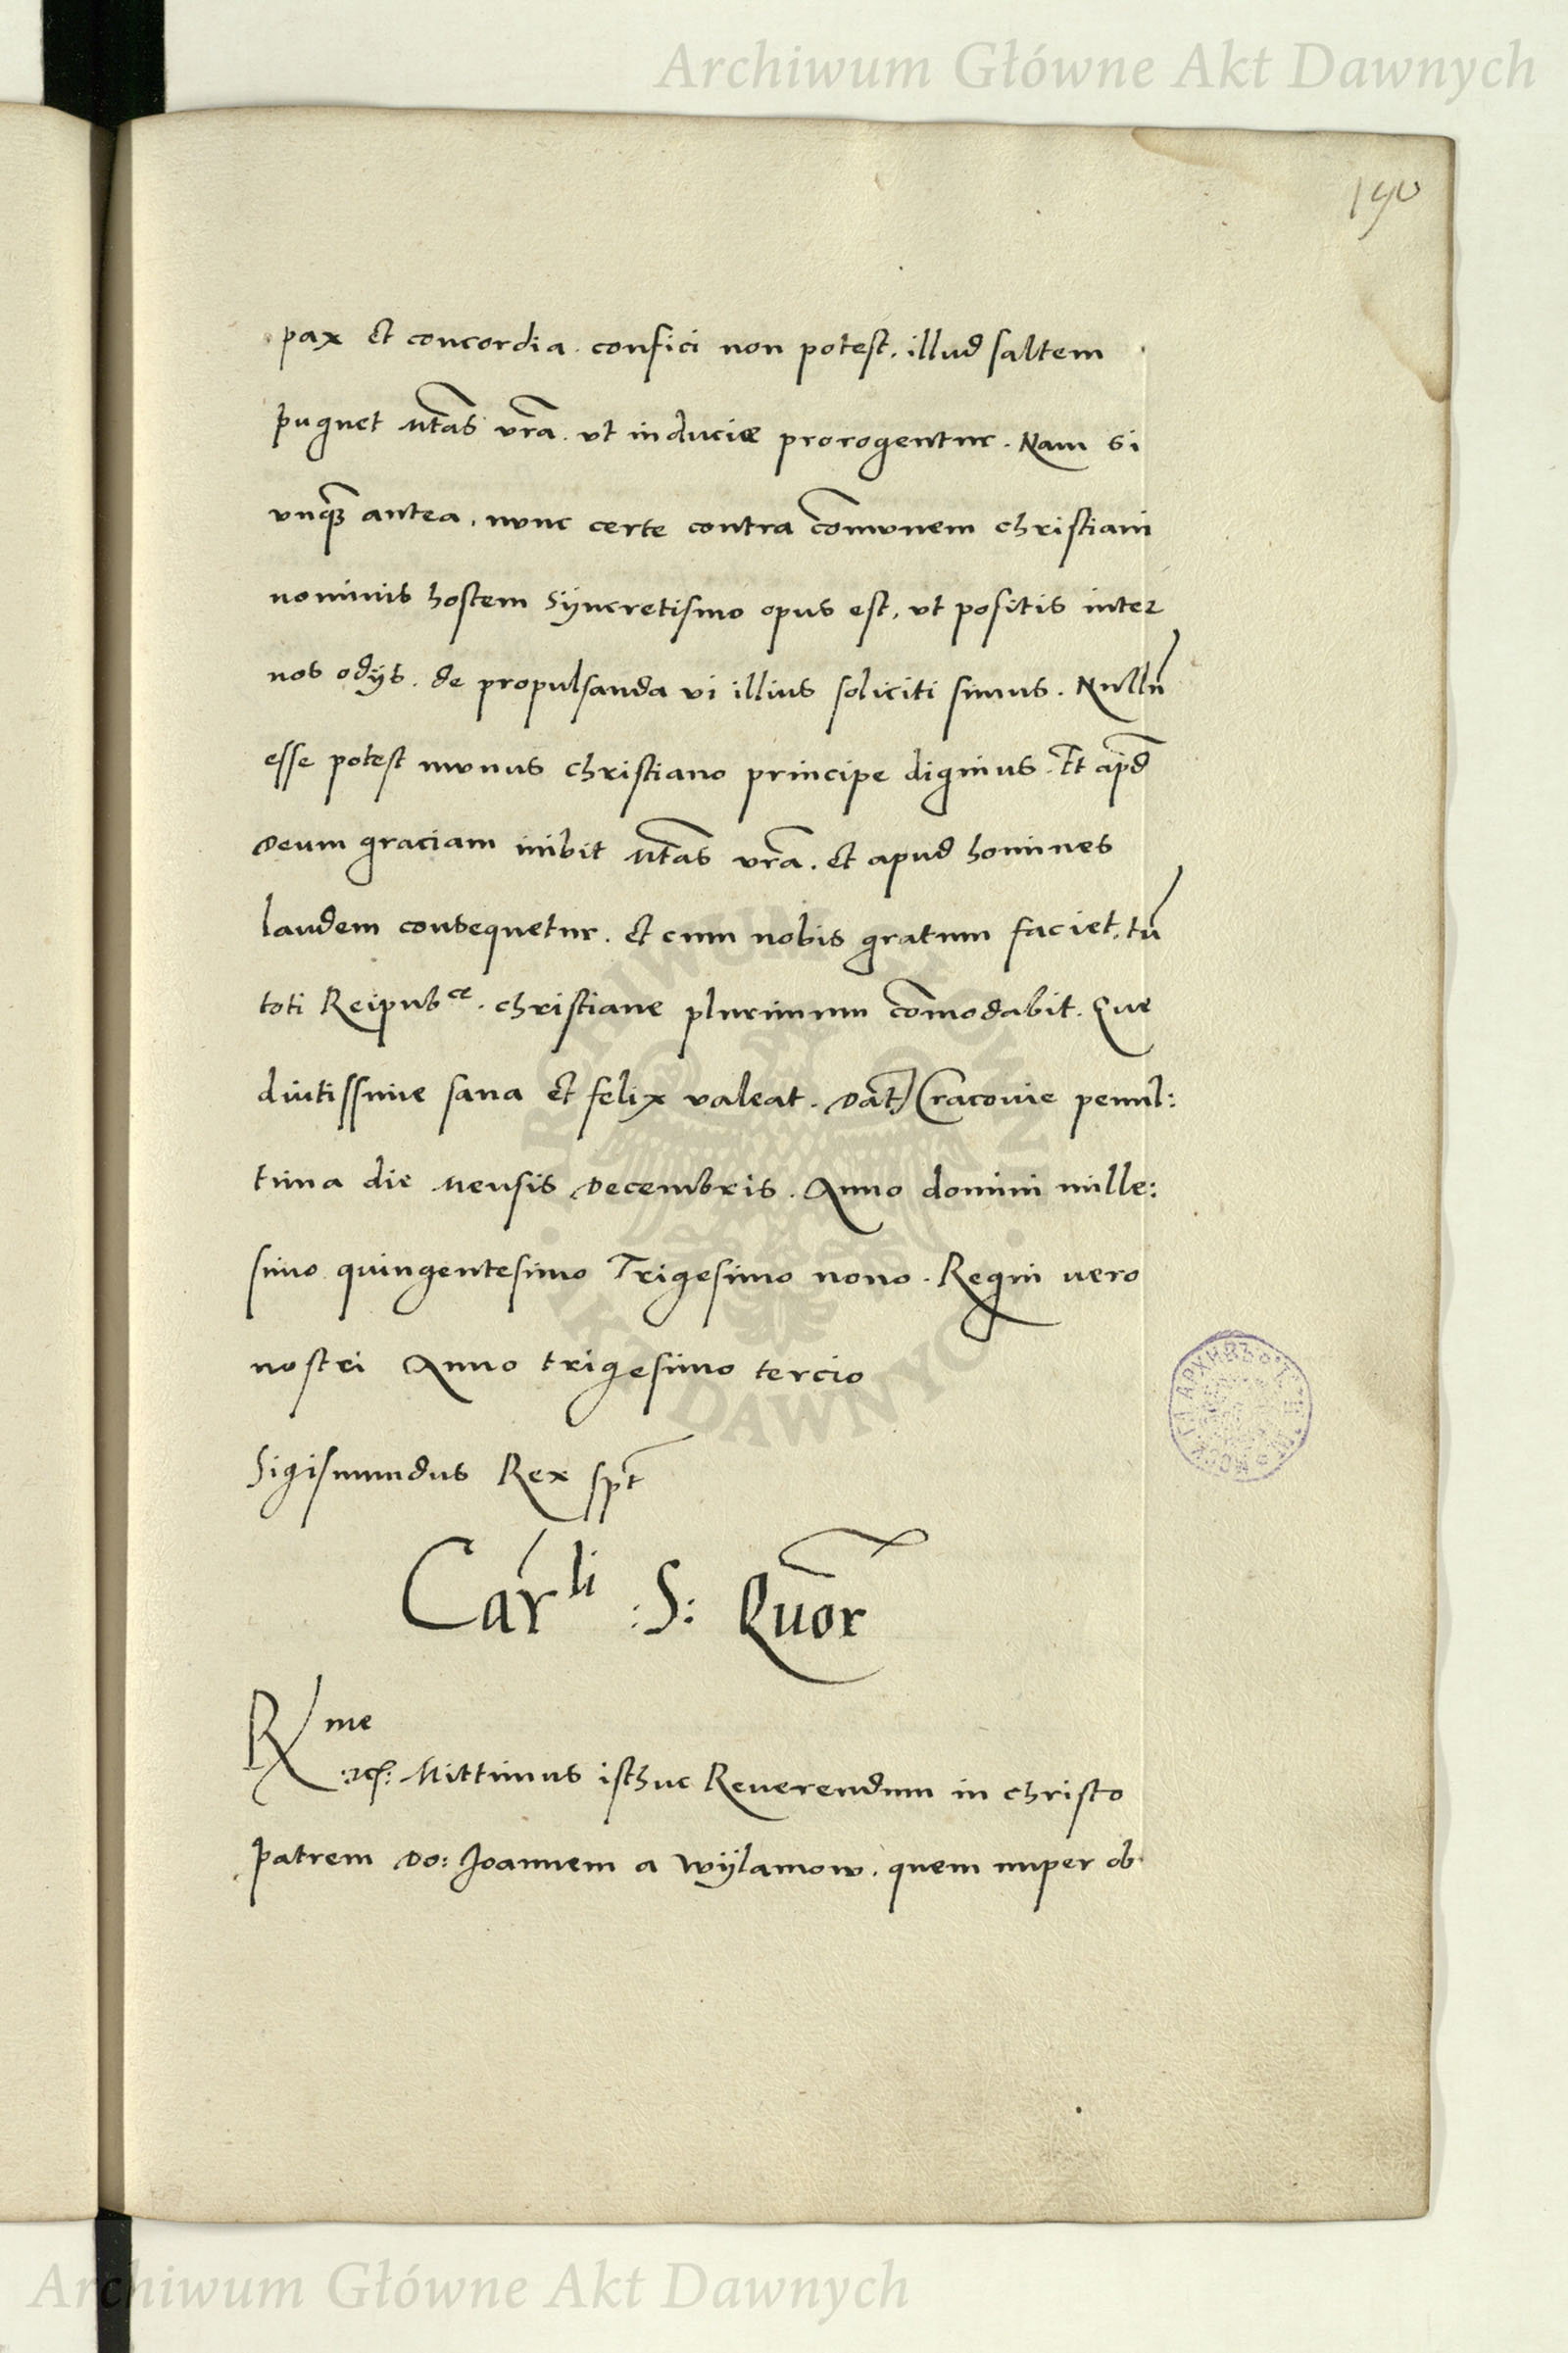 Archiwum Główne Akt Dawnych
190
pax et concordia. confici non potest. illud saltem
pugnet Mtas vra. vt induciæ prorogentur. Nam si
vnq̃ antea. nunc certe contra com̃unem christiani
nominis hostem Sÿncretismo opus est, vt positis inter
nos odÿs. de propulsanda vi illius soliciti simus. Nullũ
esse potest munus christiano principe dignius. Et apd
Deum graciam inibit Mtas vra. et apud homines
laudem consequetur. et cum nobis gratum faciet, tũ
toti Reipubce. christiane plurimum com̃odabit. Que
diutissime sana et felix valeat. Dat Cracouie penul:
tima die Mensis Decembris. Anno domini mille:
simo quingentesimo Trigesimo nono. Regni vero
nostri Anno trigesimo tercio
Sigismundus Rex sspt
Carli :S: Quor
Rme
:zc: Mittimus isthuc Reuerendum in christo
patrem Do: Joannem a Wÿlamow. quem nuper ob
ARCHIWUM GŁÓWNE AKT DAWNYCH
Archiwum Główne Akt Dawnych